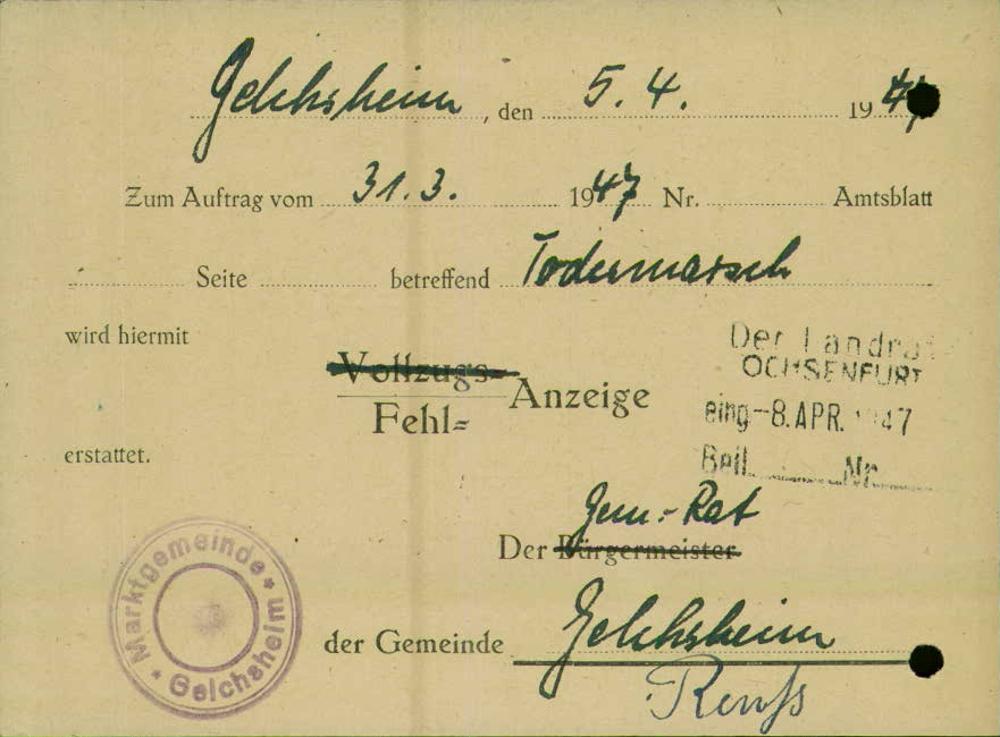 Gelchsheim, den 5. 4. 1947
Zum Auftrag vom 31. 3. 1947 Nr. Amtsblatt
Seite betreffend Todesmarsch
wird hiermit
Vollzugs-
Anzeige
Fehl=
erstattet.
Der Landrat
OCHSENFURT
eing -8. APR. 1947
Beil. Nr.
Gem.-Rat
Der Bürgermeister
der Gemeinde Gelchsheim
Marktgemeinde
* Gelchsheim *